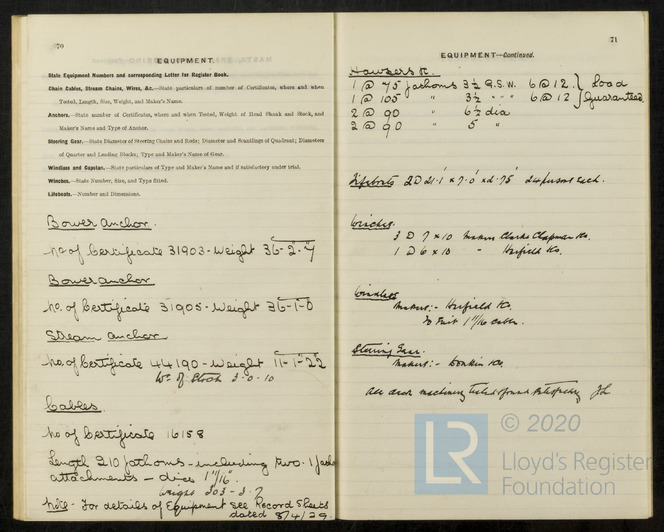 70
EQUIPMENT.
State Equipment Numbers and corresponding Letter for Register Book.
Chain Cables, Stream Chains, Wires, &c.—State particulars of number of Certificates, where and when
Tested, Length, Size, Weight, and Maker's Name.
Anchors.—State number of Certificates, where and when Tested, Weight of Head Shank and Stock, and
Maker's Name and Type of Anchor.
Steering Gear.—State Diameter of Steering Chains and Rods; Diameter and Scantlings of Quadrant; Diameters
of Quarter and Leading Blocks; Type and Maker's Name of Gear.
Windlass and Capstan.—State particulars of Type and Maker's Name and if satisfactory under trial.
Winches.—State Number, Size, and Type fitted.
Lifeboats.—Number and Dimensions.
Bower Anchor.
No of Certificate 31903 - Weight 36-2-7
Bower anchor
No. of Certificate 31905 - Weight 36-1-0
Stream anchor
No. of Certificate 44190 - Weight 11-1-22
Wt. of Stock 3-0-10
Cables
No of Certificate 16158
Length 210 fathoms - including two
attachments - dia 1 11/16".
Weight 203-3-7
Note - For details of Equipment see Record Sheets
dated 8/4/29
71
EQUIPMENT—Continued.
Hawsers
1 @ 75 fathoms 3½ G.S.W. 6 @ 12 } Load
1 @ 105 " 3½ " " 6 @ 12 } Guaranteed
2 @ 90 " 6½ dia
2 @ 90 " 5 "
Lifeboats 2 @ 21.1 x 7.0 x 2.75 24 persons each.
Winches.
3 @ 7 x 10 Makers Clarke Chapman &Co.
1 @ 6 x 10 " Harfield &Co.
Windlass
Makers:- Harfield &Co.
To suit 1 11/16 cable.
Steering Gear.
Makers:- Donkin &Co.
All deck machinery tested & found satisfactory
LR
© 2020
Lloyd's Register
Foundation